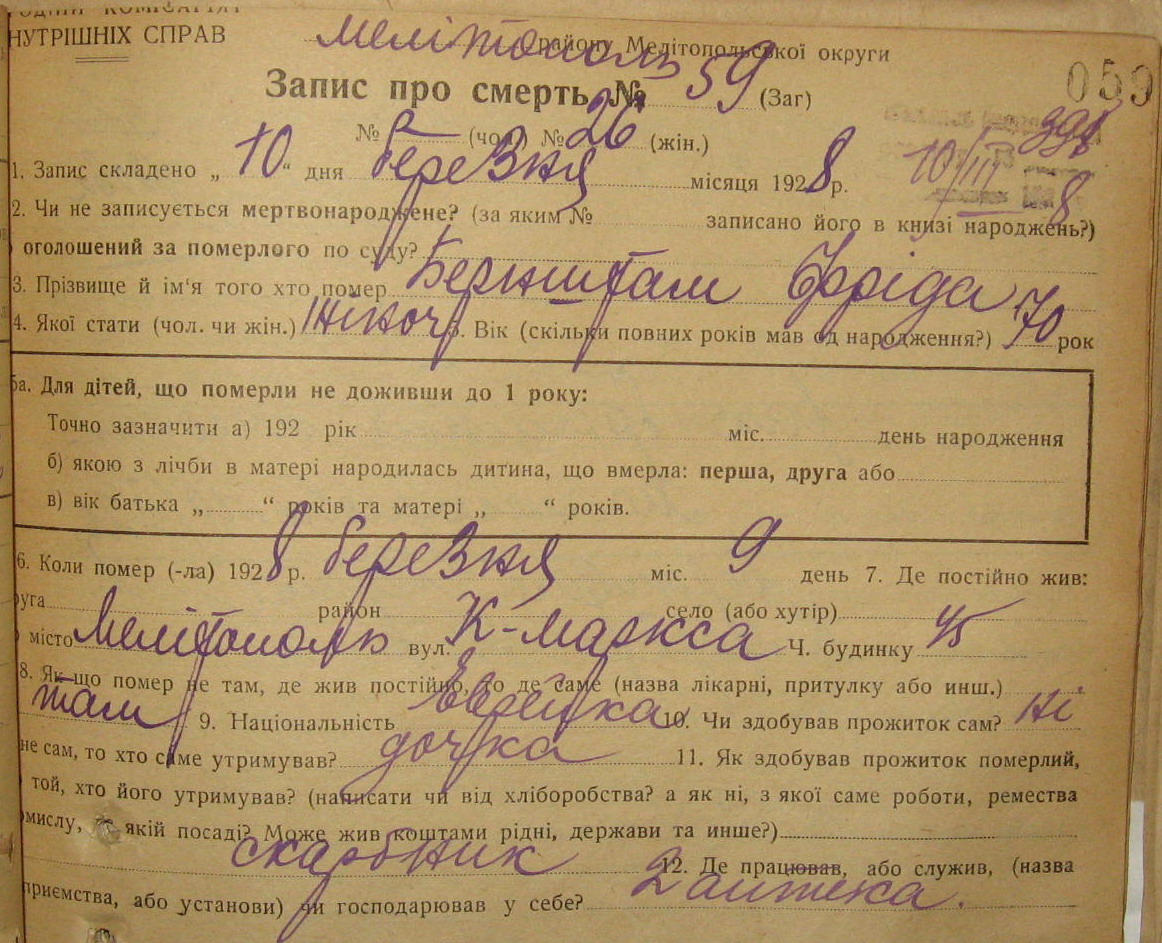 НУТРІШНІХ СПРАВ
Мелітополь району Мелітопольської округи
Запис про смерть № 59 (Заг)
059
№ (чол.) № 26 (жін.)
1. Запис складено „ 10 “ дня березня місяця 1928 р.
10/III 8
2. Чи не записується мертвонароджене? (за яким № записано його в книзі народжень?)
оголошений за померлого по суду?
3. Прізвище й ім'я того хто помер Бернштам Фріда
4. Якої стати (чол. чи жін.) жіноч 5. Вік (скільки повних років мав од народження?) 70 рок
5а. Для дітей, що померли не доживши до 1 року:
Точно зазначити а) 192 рік міс. день народження
б) якою з лічби в матері народилась дитина, що вмерла: перша, друга або
в) вік батька „ “ років та матері „ “ років.
6. Коли помер (-ла) 1928 р. березня міс. 9 день 7. Де постійно жив:
уга район село (або хутір)
місто Мелітополь вул. К-Маркса Ч. будинку 45
8. Якщо помер не там, де жив постійно, то де саме (назва лікарні, притулку або инш.)
там 9. Національність Еврейка 10. Чи здобував прожиток сам? Ні
не сам, то хто саме утримував? дочка 11. Як здобував прожиток померлий,
той, хто його утримував? (написати чи від хліборобства? а як ні, з якої саме роботи, ремества
мислу, якій посаді? Може жив коштами рідні, держави та инше?)
скарбник 12. Де працював, або служив, (назва
приємства, або установи) чи господарював у себе? 2 аптека.